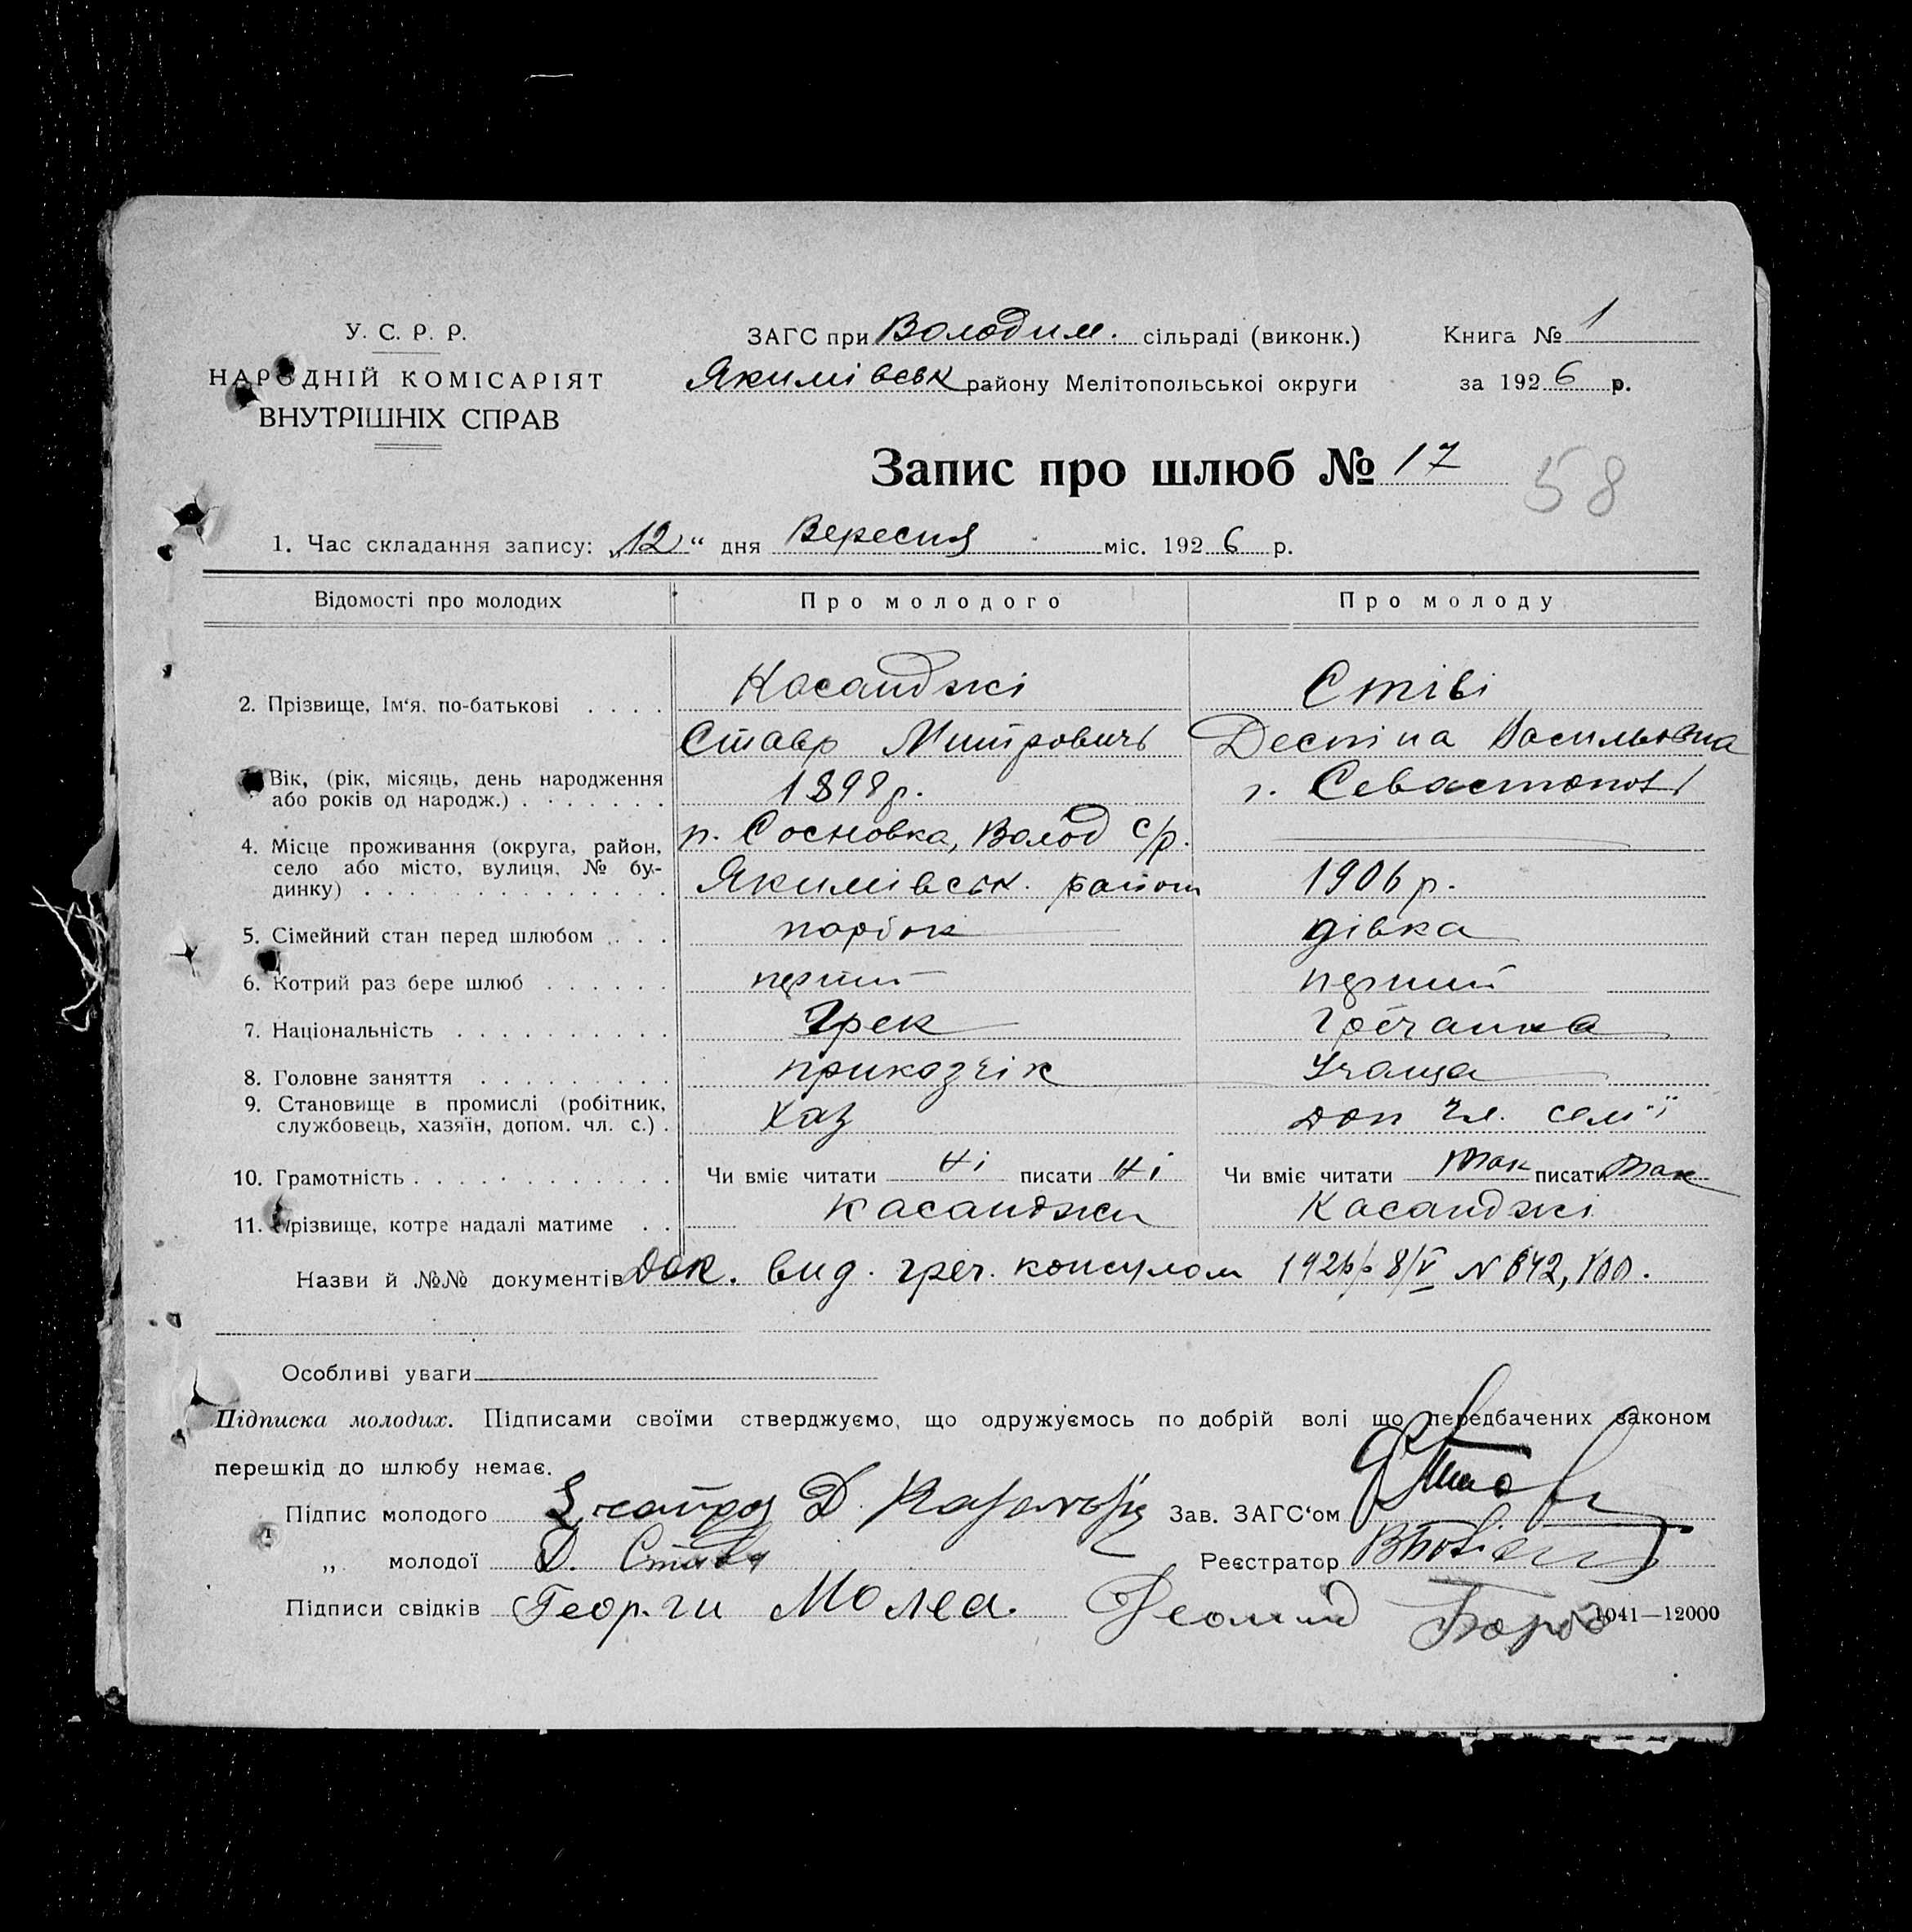 У. С. Р. Р.
НАРОДНІЙ КОМІСАРІЯТ
ВНУТРІШНІХ СПРАВ
ЗАГС при Володим. сільраді (виконк.)
Якимівськ району Мелітопольської округи
Книга № 1
за 1926 р.
Запис про шлюб № 17
58
1. Час складання запису: „12“ дня Вересня міс. 1926 р.
Відомості про молодих Про молодого Про молоду
2. Прізвище, Ім'я, по-батькові . . . . Касанджі Стіві
Ставр Митрович Деспіна Васильовна
Вік, (рік, місяць, день народження або років од народж.) 1898 р. г. Севастополь
4. Місце проживання (округа, район, село або місто, вулиця, № будинку) п. Сосновка, Волод с/р.
Якимівськ. район 1906 р.
5. Сімейний стан перед шлюбом . . . парубок дівка
6. Котрий раз бере шлюб . . . . . . перший перший
7. Національність . . . . . . . . . . Грек Гречанка
8. Головне заняття . . . . . . . . . приказчік Учаща
9. Становище в промислі (робітник, службовець, хазяїн, допом. чл. с.) . Хаз доп чл. сем'ї
10. Грамотність . . . . . . . . . . . . Чи вміє читати Ні писати Ні Чи вміє читати Так писати Так
11. Прізвище, котре надалі матиме . . Касанджи Касанджі
Назви й №№ документів Док. вид. греч. консулом 1926 р 8/V N 842,
Особливі уваги
Підписка молодих. Підписами своїми стверджуємо, що одружуємось по добрій волі що передбачених законом
перешкід до шлюбу немає.
Підпис молодого Д. Зав. ЗАГС'ом
„ молодої Д. Стиви Реєстратор
Підписи свідків Георги Молеа.
1041—12000